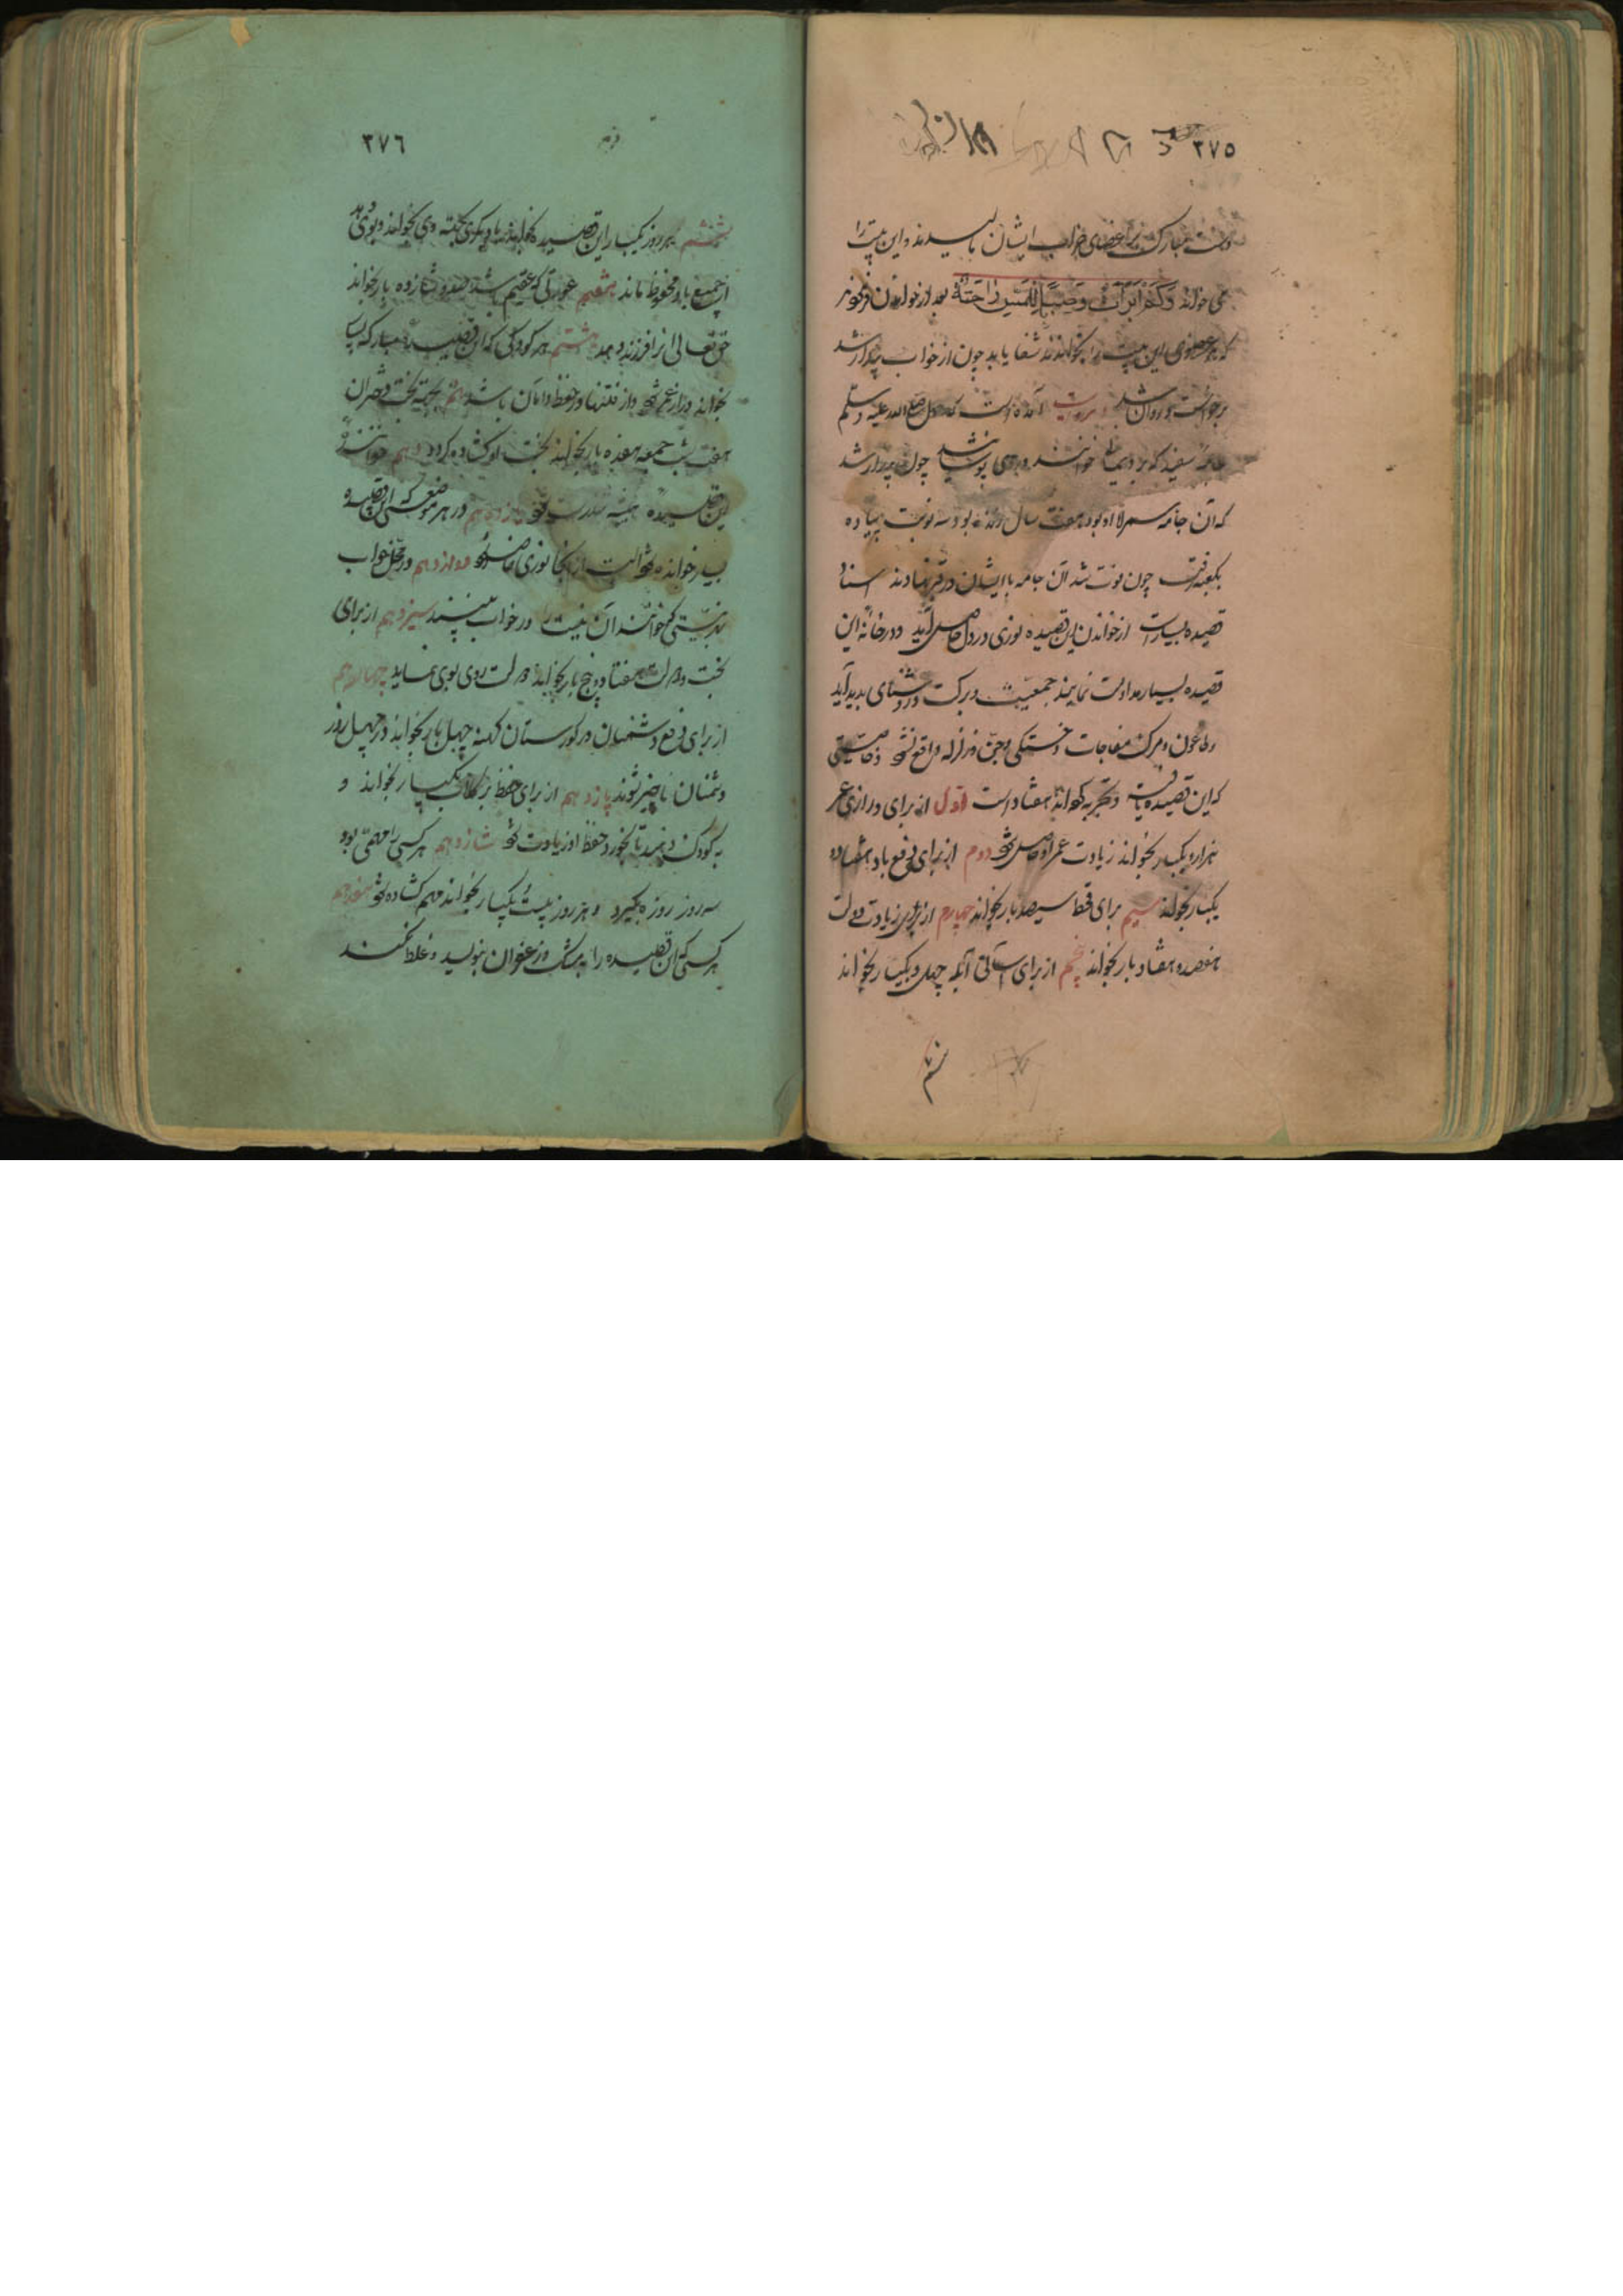 ۳۷۵
دست مبارک بر اعضای خواب ایشان بالیدند و این بیت را
می خواند وَكَمْ اَبْرَأَتْ وَصِبًا بِاللَّمْسِ رَاحَتُهُ بعد از خواندن فرمودند
که بر عضوی این بیت را بخوانند شفا یابد چون از خواب بیدار شد
برخواست و روان شد روایت آمده است که رسول صلی الله علیه و سلم
جامه سفید که برد یمانی خوانند بر وی پوشانید چون بیدار شد
که آن جامه همراه او بود هفت سال زنده بود سه نوبت پیاده
بکعبه رفت چون فوت شد آن جامه با ایشان در قبر نهادند اسناد
قصیده بسیارست از خواندن این قصیده نوری در دل حاصل آید و در خانه این
قصیده بسیار مداومت نمایند جمعیت و برکت و روشنای پدید آید
و طاعون و مرگ مفاجات و خستگی و جن و زلزله واقع نشود خاصیتی
که این قصیده یافته و تجربه کرده‌اند هفتاد است اول از برای درازی عمر
هزار و یکبار بخواند زیادت عمر او حاصل شود دوم از برای دفع باد هفتاد و
یکبار بخواند سیم برای قحط سیصد بار بخواند چهارم از برای زیادت دولت
هفصد و هفتاد بار بخواند پنجم از برای آسانی آبله چهل و یکبار بخواند
ششم
۳۷۶
ششم هر روز یکبار این قصیده بخواند یا دیگری بجهته وی بخواند و بوی دمد
از جمیع بلا محفوظ ماند هفتم عورتی که عقیم باشد صد و شانزده بار خواند
حق تعالی او را فرزند دهد هشتم هر کودکی که این قصیده مبارکه بسیار
بخواند دراز عمر شود و از فتنها در حفظ و امان باشد نهم بجهته بخت دختران
هفت شب جمعه هفده بار بخواند بخت او گشاده گردد دهم خواننده
این قصیده همیشه تندرست شود یازدهم در هر موضعی که این قصیده
بسیار خوانده شود است از آنجا نوری حاصل شود دوازدهم در محل خواب
بهر نیتی که خوانند آن نیت را در خواب بینند سیزدهم از برای
بخت و دولت هفتاد و پنج بار بخواند دولت روی بوی نماید چهاردهم
از برای دفع دشمنان در گورستان کهنه چهل بار بخواند در چهل روز
دشمنان ناچیز شوند پانزدهم از برای حفظ بر گلاب یکبار بخواند و
به کودک دهند تا بخورد حفظ او زیادت شود شانزدهم هر کسی را مهمی بود
سه روز روزه بگیرد و هر روز بیست و یکبار بخواند مهم گشاده شود هفدهم
هر کسی که این قصیده را به مشک و زعفران بنویسد و غلط نکند